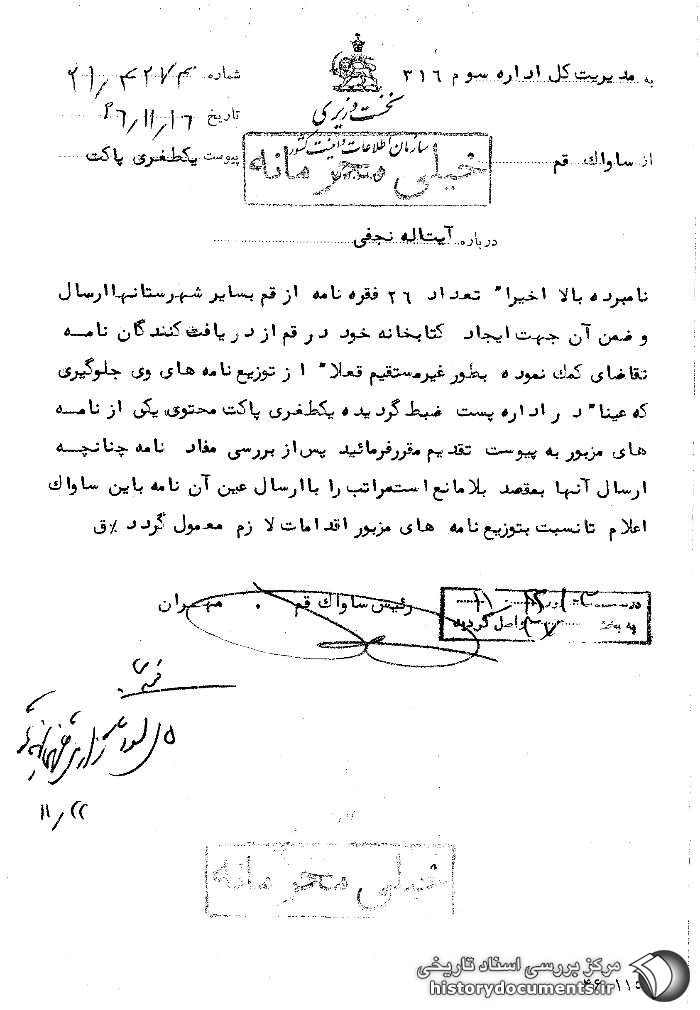 به مدیریت کل اداره سوم ۳۱۶
شماره ۲۱/۴۲۷۳
نخست وزیری
تاریخ ۴۶/۱۱/۱۶
سازمان اطلاعات و امنیت کشور
از ساواك قم
پیوست یکطغری پاکت
خیلی محرمانه
درباره آیت‌اله نجفی
نامبرده بالا اخیرا" تعداد ۲۶ فقره نامه از قم بسایر شهرستانها ارسال
و ضمن آن جهت ایجاد کتابخانه خود در قم از دریافت کنندگان نامه
تقاضای کمك نموده بطور غیرمستقیم فعلا" از توزیع نامه های وی جلوگیری
که عینا" در اداره پست ضبط گردیده یکطغری پاکت محتوی یکی از نامه
های مزبور به پیوست تقدیم مقررفرمائید پس از بررسی مفاد نامه چنانچه
ارسال آنها بمقصد بلامانع است مراتب را با ارسال عین آن نامه باین ساواك
اعلام تا نسبت بتوزیع نامه های مزبور اقدامات لازم معمول گردد٪ق
رئیس ساواك قم . مهران
واصل گردید
۱۱/۲۲
خیلی محرمانه
مرکز بررسی اسناد تاریخی
historydocuments.ir